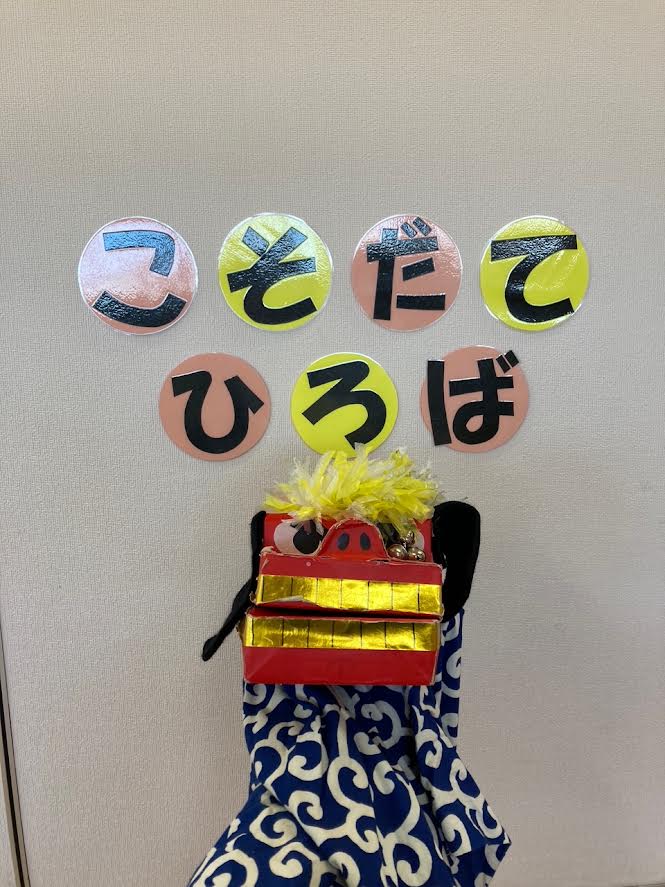 こそだて
ひろば